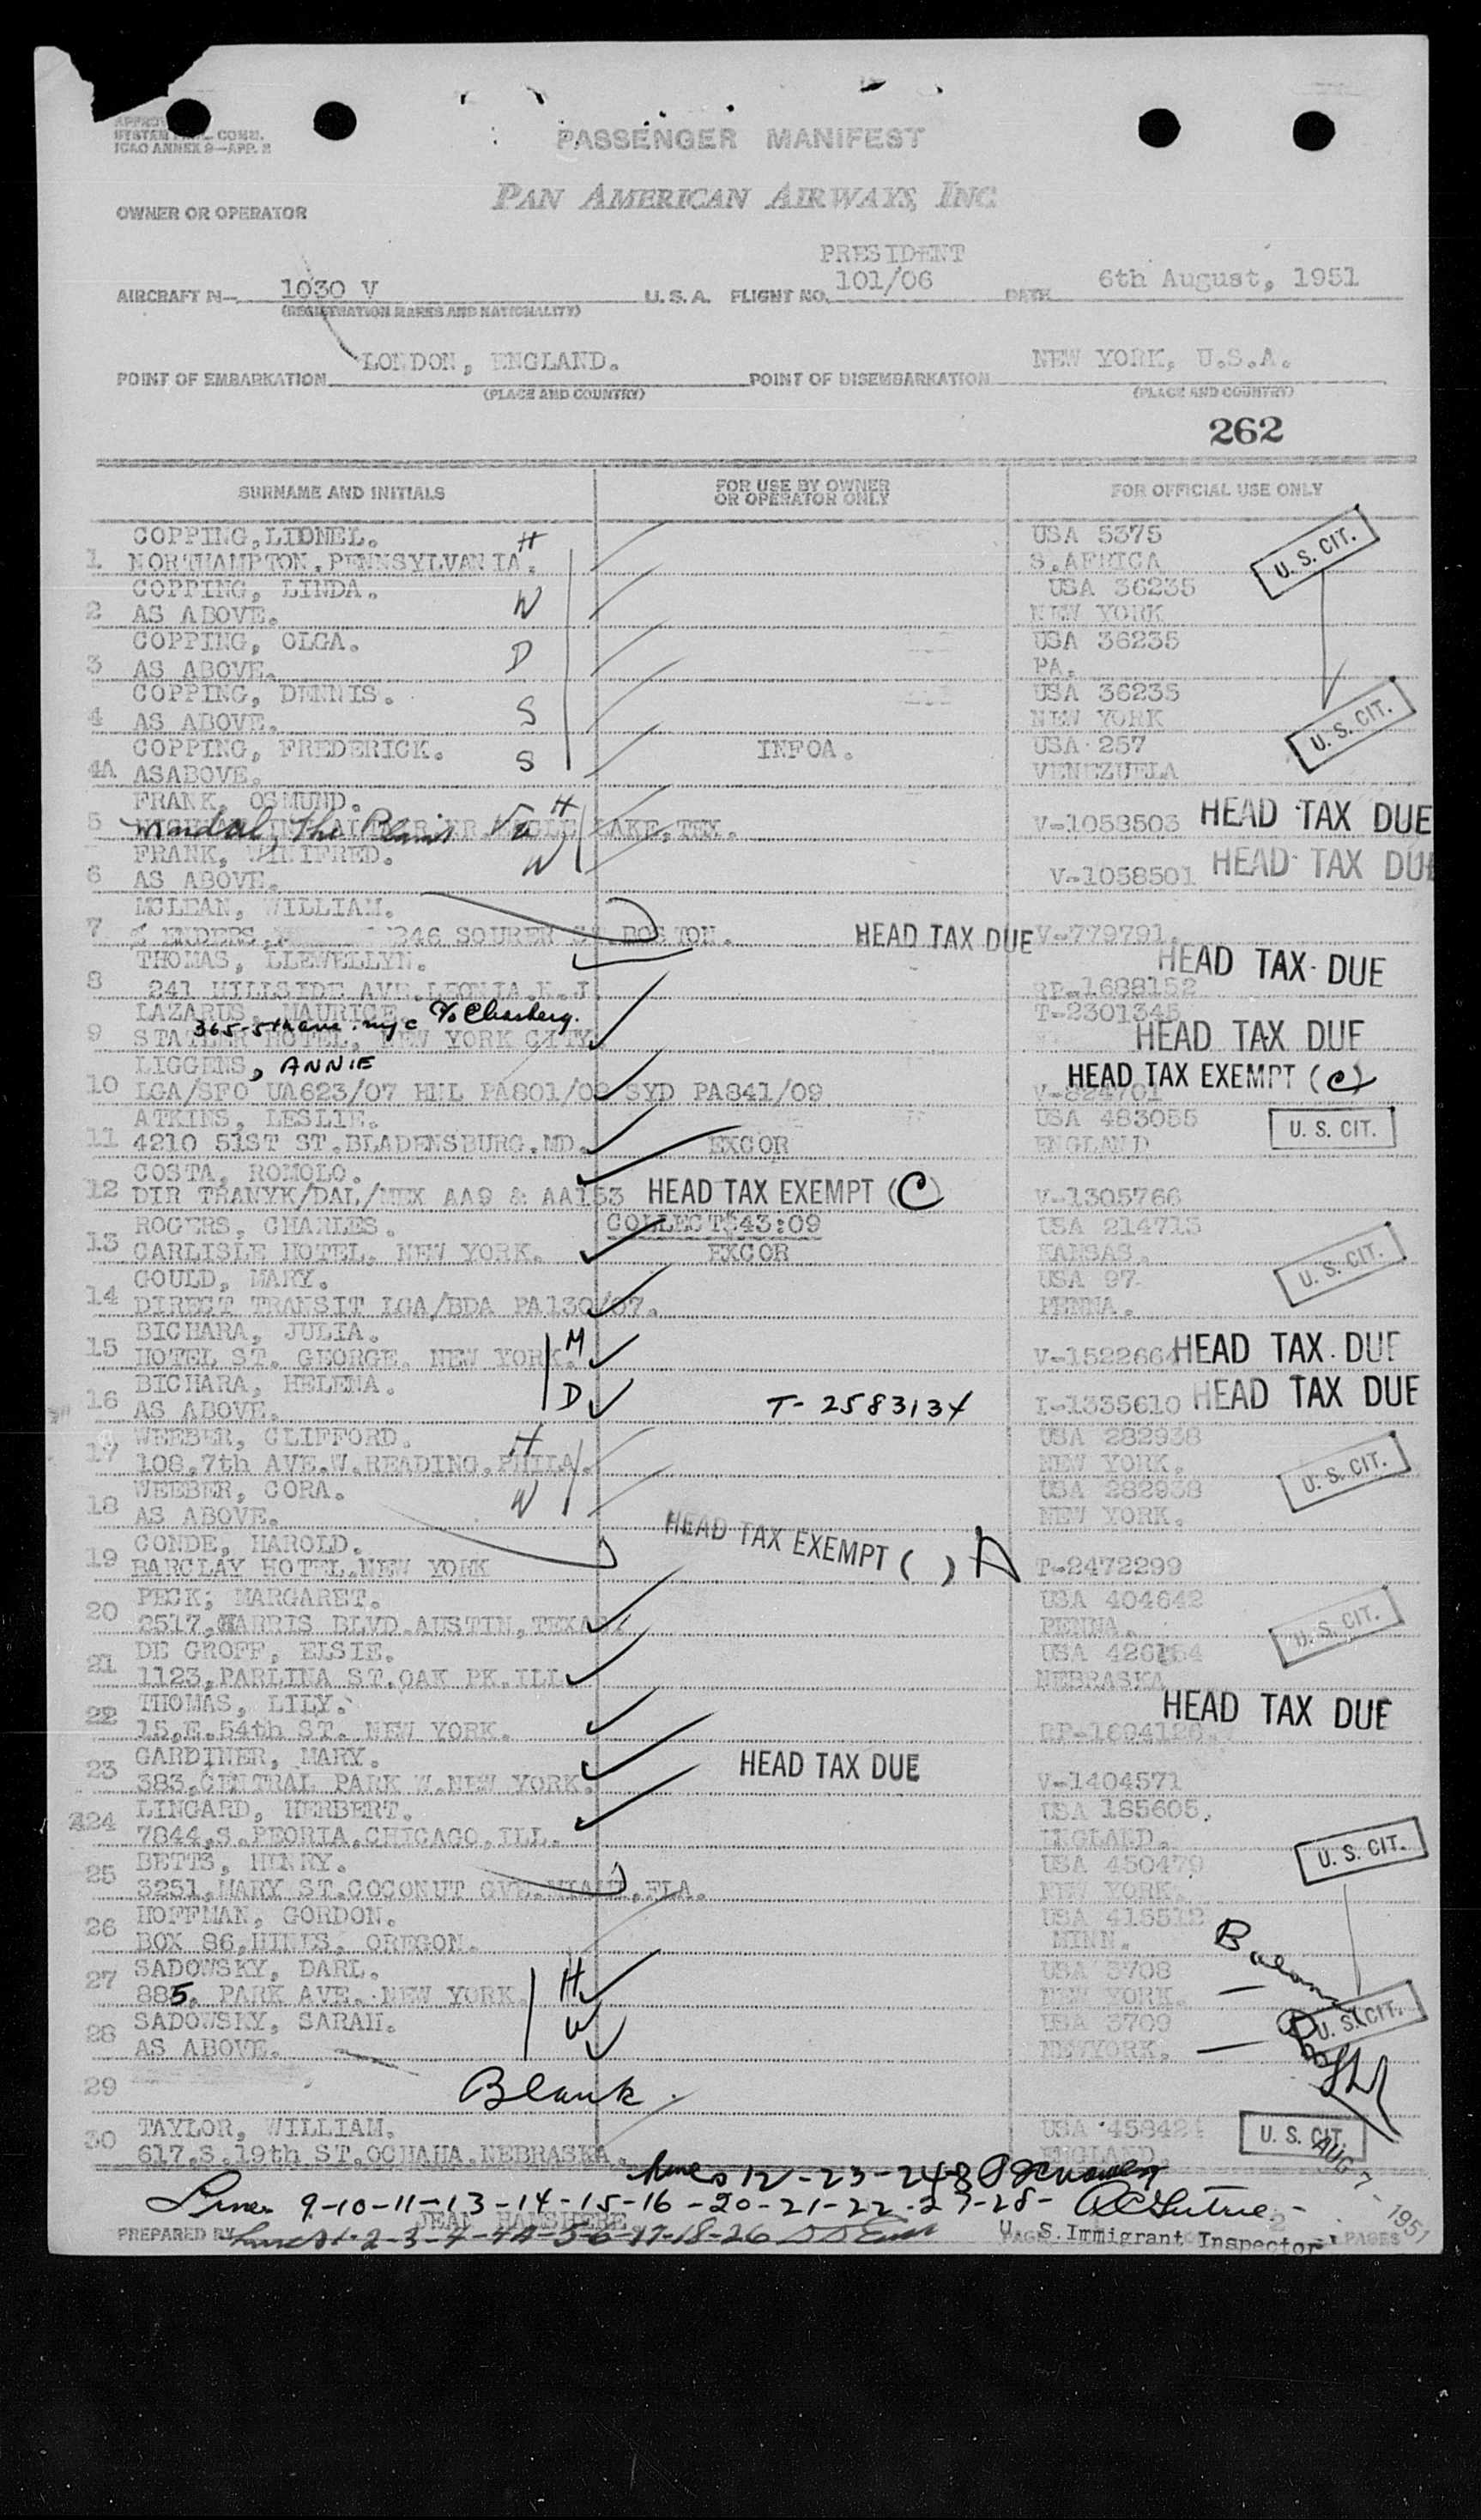 SYSTAN COMM.
ICAO ANNEX 9—APP. 2
PASSENGER MANIFEST
PAN AMERICAN AIRWAYS, INC
OWNER OR OPERATOR
PRESIDENT
AIRCRAFT N—. 1030 V U. S. A. FLIGHT NO. 101/06 DATE 6th August, 1951
(REGISTRATION MARKS AND NATIONALITY)
POINT OF EMBARKATION LONDON, ENGLAND. POINT OF DISEMBARKATION NEW YORK, U.S.A.
(PLACE AND COUNTRY) (PLACE AND COUNTRY)
262
SURNAME AND INITIALS FOR USE BY OWNER OR OPERATOR ONLY FOR OFFICIAL USE ONLY
COPPING, LIONEL. H USA 5375 U. S. CIT.
1 NORTHAMPTON, PENNSYLVANIA. S.AFRICA
COPPING, LINDA. W USA 36235
2 AS ABOVE. NEW YORK
COPPING, OLGA. D USA 36235
3 AS ABOVE. PA.
COPPING, DENNIS. S USA 36235
4 AS ABOVE. NEW YORK U. S. CIT.
COPPING, FREDERICK. S INFOA. USA 257
4A ASABOVE. VENEZUELA
FRANK, OSMUND. H
5 The Plains Va LAKE, TEX. V-1058503 HEAD TAX DUE
FRANK, WINIFRED. W
6 AS ABOVE. V-1058501 HEAD TAX DUE
MCLEAN, WILLIAM.
7 246 BOSTON. HEAD TAX DUE V-779791.
THOMAS, LLEWELLYN. HEAD TAX DUE
8 241 HILLSIDE AVE. LEONIA. N.J. RP-1688152
LAZARUS, MAURICE. T-2301345
365-5th ave. nyc c/o
9 STATLER HOTEL, NEW YORK CITY. HEAD TAX DUE
LIGGENS, ANNIE HEAD TAX EXEMPT (C)
10 LGA/SFO UA623/07 HNL PA801/08 SYD PA841/09 V-824701
ATKINS, LESLIE. USA 483055 U. S. CIT.
11 4210 51ST ST. BLADENSBURG. MD. EXCOR ENGLAND
COSTA, ROMOLO.
12 DIR TRANYK/DAL/MEX AA9 & AA153 HEAD TAX EXEMPT (C) V-1305766
ROGERS, CHARLES. COLLECT$43:09 USA 214713
13 CARLISLE HOTEL. NEW YORK. EXCOR KANSAS. U. S. CIT.
GOULD, MARY. USA 97
14 DIRECT TRANSIT LGA/BDA PA130/07. PENNA.
BICHARA, JULIA. M
15 HOTEL ST. GEORGE. NEW YORK. V-1522664 HEAD TAX DUE
BICHARA, HELENA. D
16 AS ABOVE. T-2583134 I-1335610 HEAD TAX DUE
WEEBER, CLIFFORD. H USA 282938
17 108, 7th AVE. W. READING, PHILA. NEW YORK. U. S. CIT.
WEEBER, CORA. W USA 282938
18 AS ABOVE. NEW YORK.
CONDE, HAROLD. HEAD TAX EXEMPT ( ) A
19 BARCLAY HOTEL. NEW YORK T-2472299
PECK; MARGARET. USA 404642
20 2517, HARRIS BLVD. AUSTIN, TEXAS. PENNA. U. S. CIT.
DE GROFF, ELSIE.
21 1123, PARLINA ST. OAK PK. ILL. NEBRASKA
THOMAS, LILY. HEAD TAX DUE
22 15, E. 54th ST. NEW YORK.
GARDINER, MARY.
23 383, CENTRAL PARK W. NEW YORK. HEAD TAX DUE V-1404571
LINGARD, HERBERT. USA 185605.
24 7844, S. PEORIA, CHICAGO, ILL. ENGLAND. U. S. CIT.
BETTS, HENRY. USA 450479
25 3251, MARY ST. COCONUT GVE. MIAMI, FLA. NEW YORK.
HOFFMAN, GORDON. USA 415512
26 BOX 86, HINES, OREGON. MINN.
SADOWSKY, DARL. H USA 3708
27 885, PARK AVE. NEW YORK. NEW YORK. U. S. CIT.
SADOWSKY, SARAH. W USA 3709
28 AS ABOVE. NEWYORK.
29 Blank
TAYLOR, WILLIAM. USA 458424 U. S. CIT.
30 617, S. 19th ST. OCHAHA. NEBRASKA. ENGLAND
AUG 7 - 1951
Lines 12-23-24-8
Lines 9-10-11-13-14-15-16-20-21-22-27-28-
PREPARED BY JEAN
Lines 1-2-3-4-4A-5-6-17-18-26
U. S. Immigrant Inspector PAGES